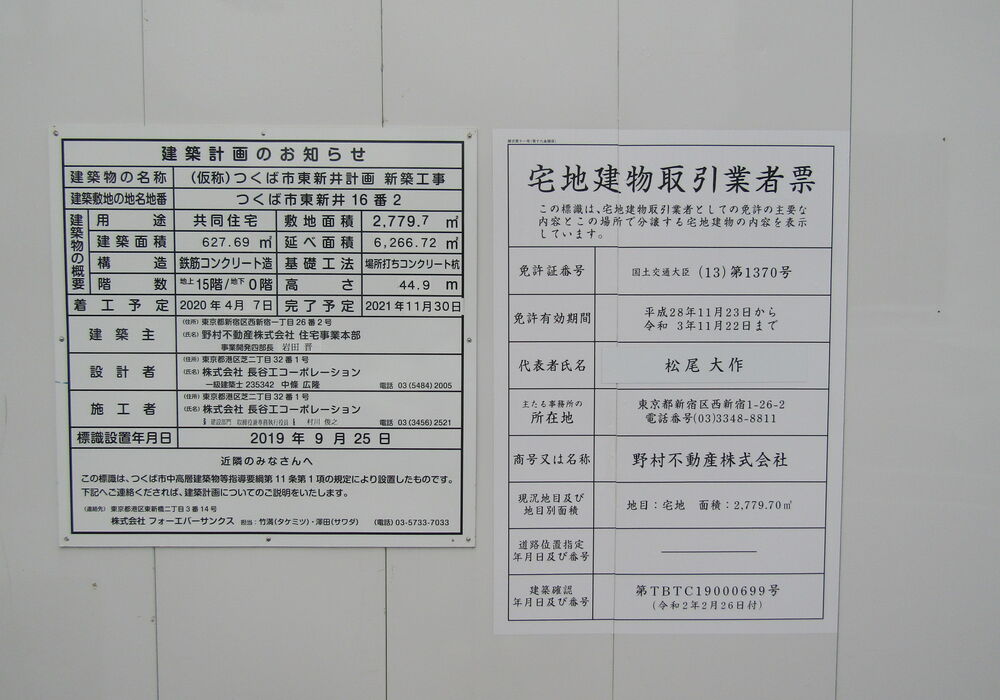 建築計画のお知らせ
建築物の名称 (仮称)つくば市東新井計画 新築工事
建築敷地の地名地番 つくば市東新井16番2
建築物の概要
用途 共同住宅 敷地面積 2,779.7 ㎡
建築面積 627.69 ㎡ 延べ面積 6,266.72 ㎡
構造 鉄筋コンクリート造 基礎工法 場所打ちコンクリート杭
階数 地上15階/地下0階 高さ 44.9 m
着工予定 2020年4月7日 完了予定 2021年11月30日
建築主 (住所) 東京都新宿区西新宿一丁目26番2号
(氏名) 野村不動産株式会社 住宅事業本部
事業開発四部長 岩田 晋
設計者 (住所) 東京都港区芝二丁目32番1号
(氏名) 株式会社 長谷工コーポレーション
一級建築士 235342 中條 広隆 電話 03(5484)2005
施工者 (住所) 東京都港区芝二丁目32番1号
(氏名) 株式会社 長谷工コーポレーション
村川 俊之 電話 03(3456)2521
標識設置年月日 2019年9月25日
近隣のみなさんへ
この標識は、つくば市中高層建築物等指導要綱第11条第1項の規定により設置したものです。
下記へご連絡くだされば、建築計画についてのご説明をいたします。
(連絡先) 東京都港区東新橋二丁目3番14号
株式会社 フォーエバーサンクス 担当：竹満(タケミツ)・澤田(サワダ) (電話)03-5733-7033
宅地建物取引業者票
この標識は、宅地建物取引業者としての免許の主要な
内容とこの場所で分譲する宅地建物の内容を表示
しています。
免許証番号 国土交通大臣 (13)第1370号
免許有効期間 平成28年11月23日から
令和 3年11月22日まで
代表者氏名 松尾 大作
主たる事務所の
所在地
東京都新宿区西新宿1-26-2
電話番号(03)3348-8811
商号又は名称 野村不動産株式会社
現況地目及び
地目別面積
地目：宅地 面積：2,779.70㎡
道路位置指定
年月日及び番号
建築確認
年月日及び番号
第TBTC19000699号
(令和2年2月26日付)